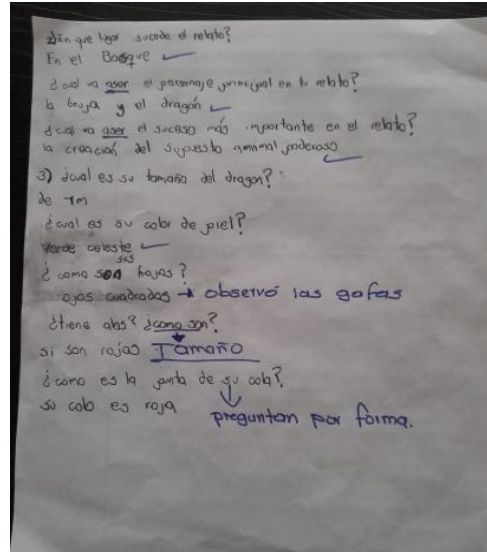 2) En que lugar sucede el relato?
En el Bosque
¿cual va aser el personaje principal en tu relato?
la bruja y el dragón
¿cual va aser el suceso más importante en el relato?
la creación del supuesto animal poderoso
3) ¿cual es su tamaño del dragon?
de 1m
¿cual es su color de piel?
verde celeste
¿como son sus hojas?
ojos cuadrados → observó las gafas
¿tiene alas? ¿como son?
si son rojas Tamaño
¿como es la punta de su cola?
su cola es roja
preguntan por forma.